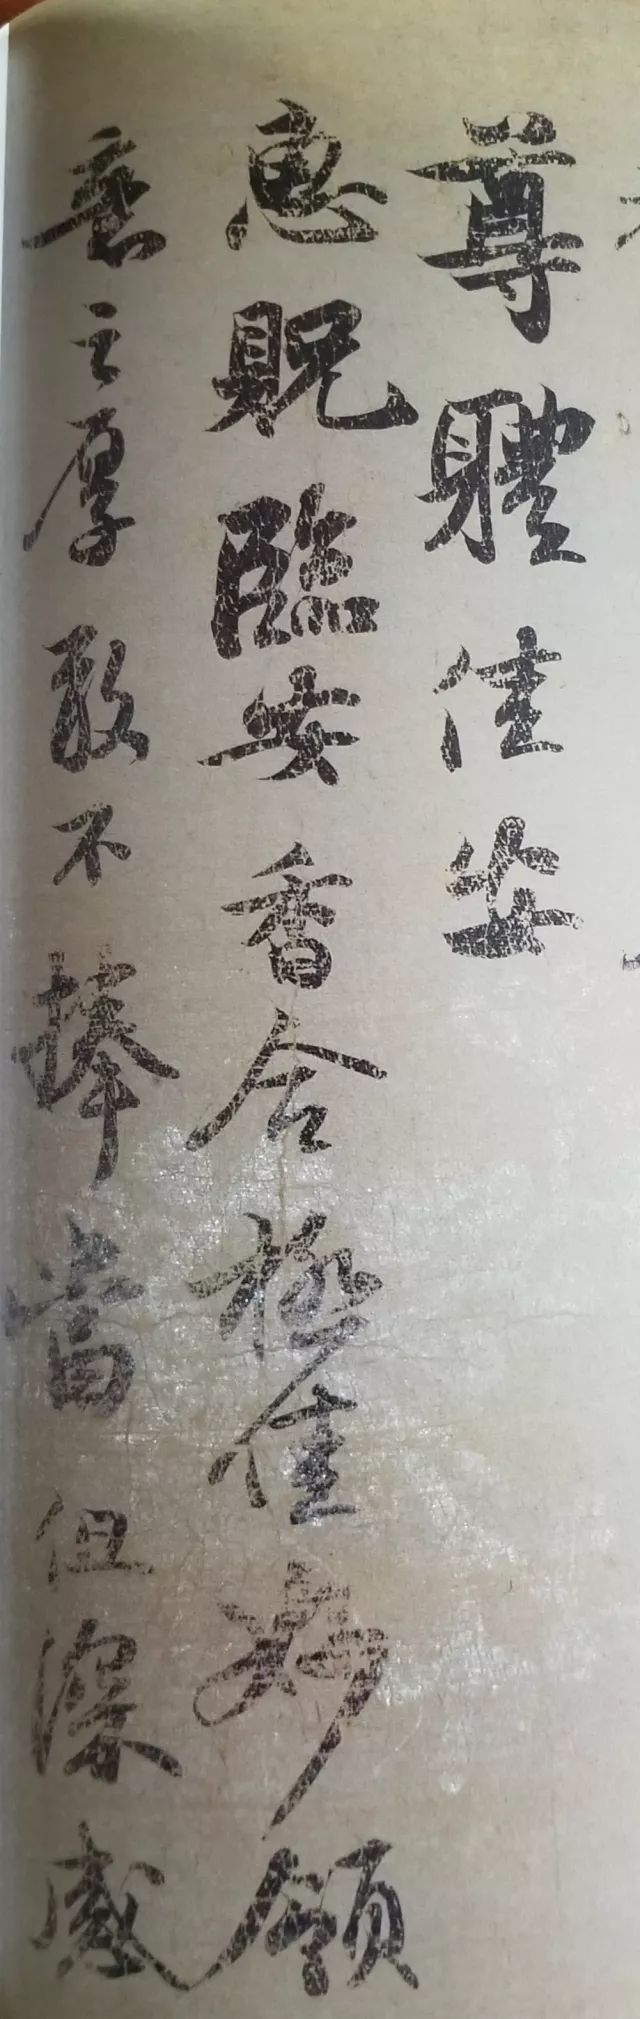 尊體佳安
惠貺臨安香合極佳妙領
意之厚敢不捧當但深感